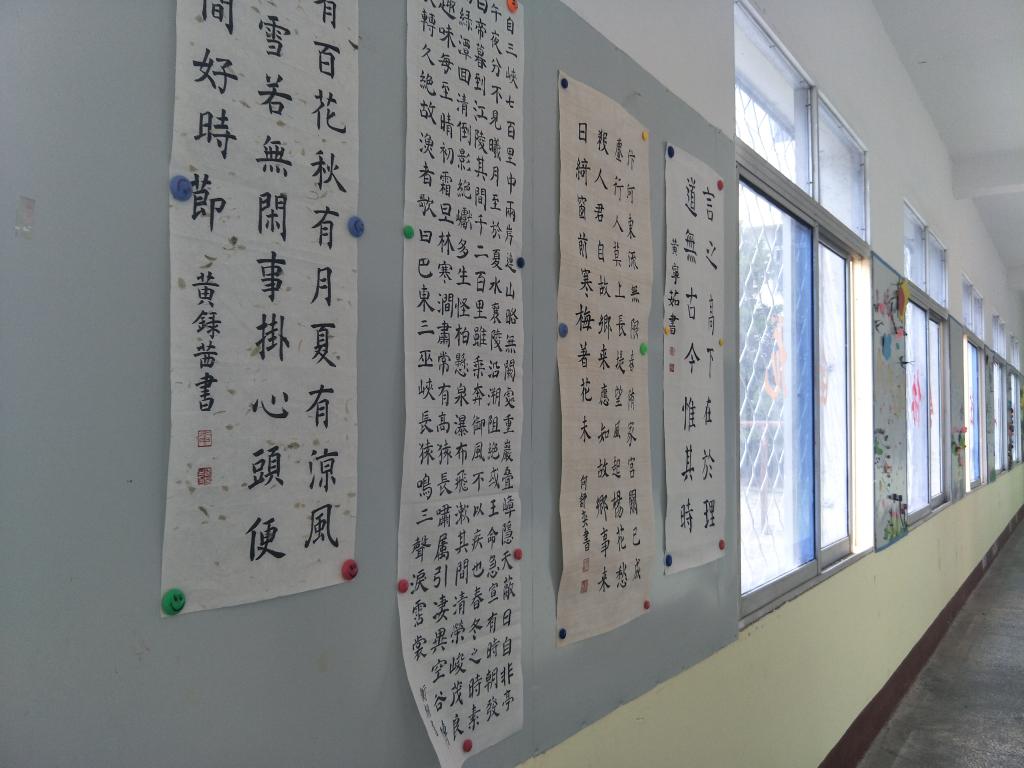 有百花秋有月夏有涼風
雪若無閑事掛心頭便
間好時節
黄録茜書
自三峽七百里中兩岸連山略無闕處重巖疊嶂隱天蔽日自非亭
午夜分不見曦月至於夏水襄陵沿溯阻絕或王命急宣有時朝發
白帝暮到江陵其間千二百里雖乘奔御風不以疾也春冬之時素
綠潭回清倒影絕巘多生怪柏懸泉瀑布飛漱其間清榮峻茂良
趣味每至晴初霜旦林寒澗肅常有高猿長嘯屬引淒異空谷傳
轉久絕故漁者歌曰巴東三巫峽長猿鳴三聲淚霑裳
汴河東流無限春隋家宮闕已成
塵行人莫上長堤望風起楊花愁
殺人君自故鄉來應知故鄉事來
日綺窗前寒梅著花未
言之高下在於理
道無古今惟其時
黄寧如書